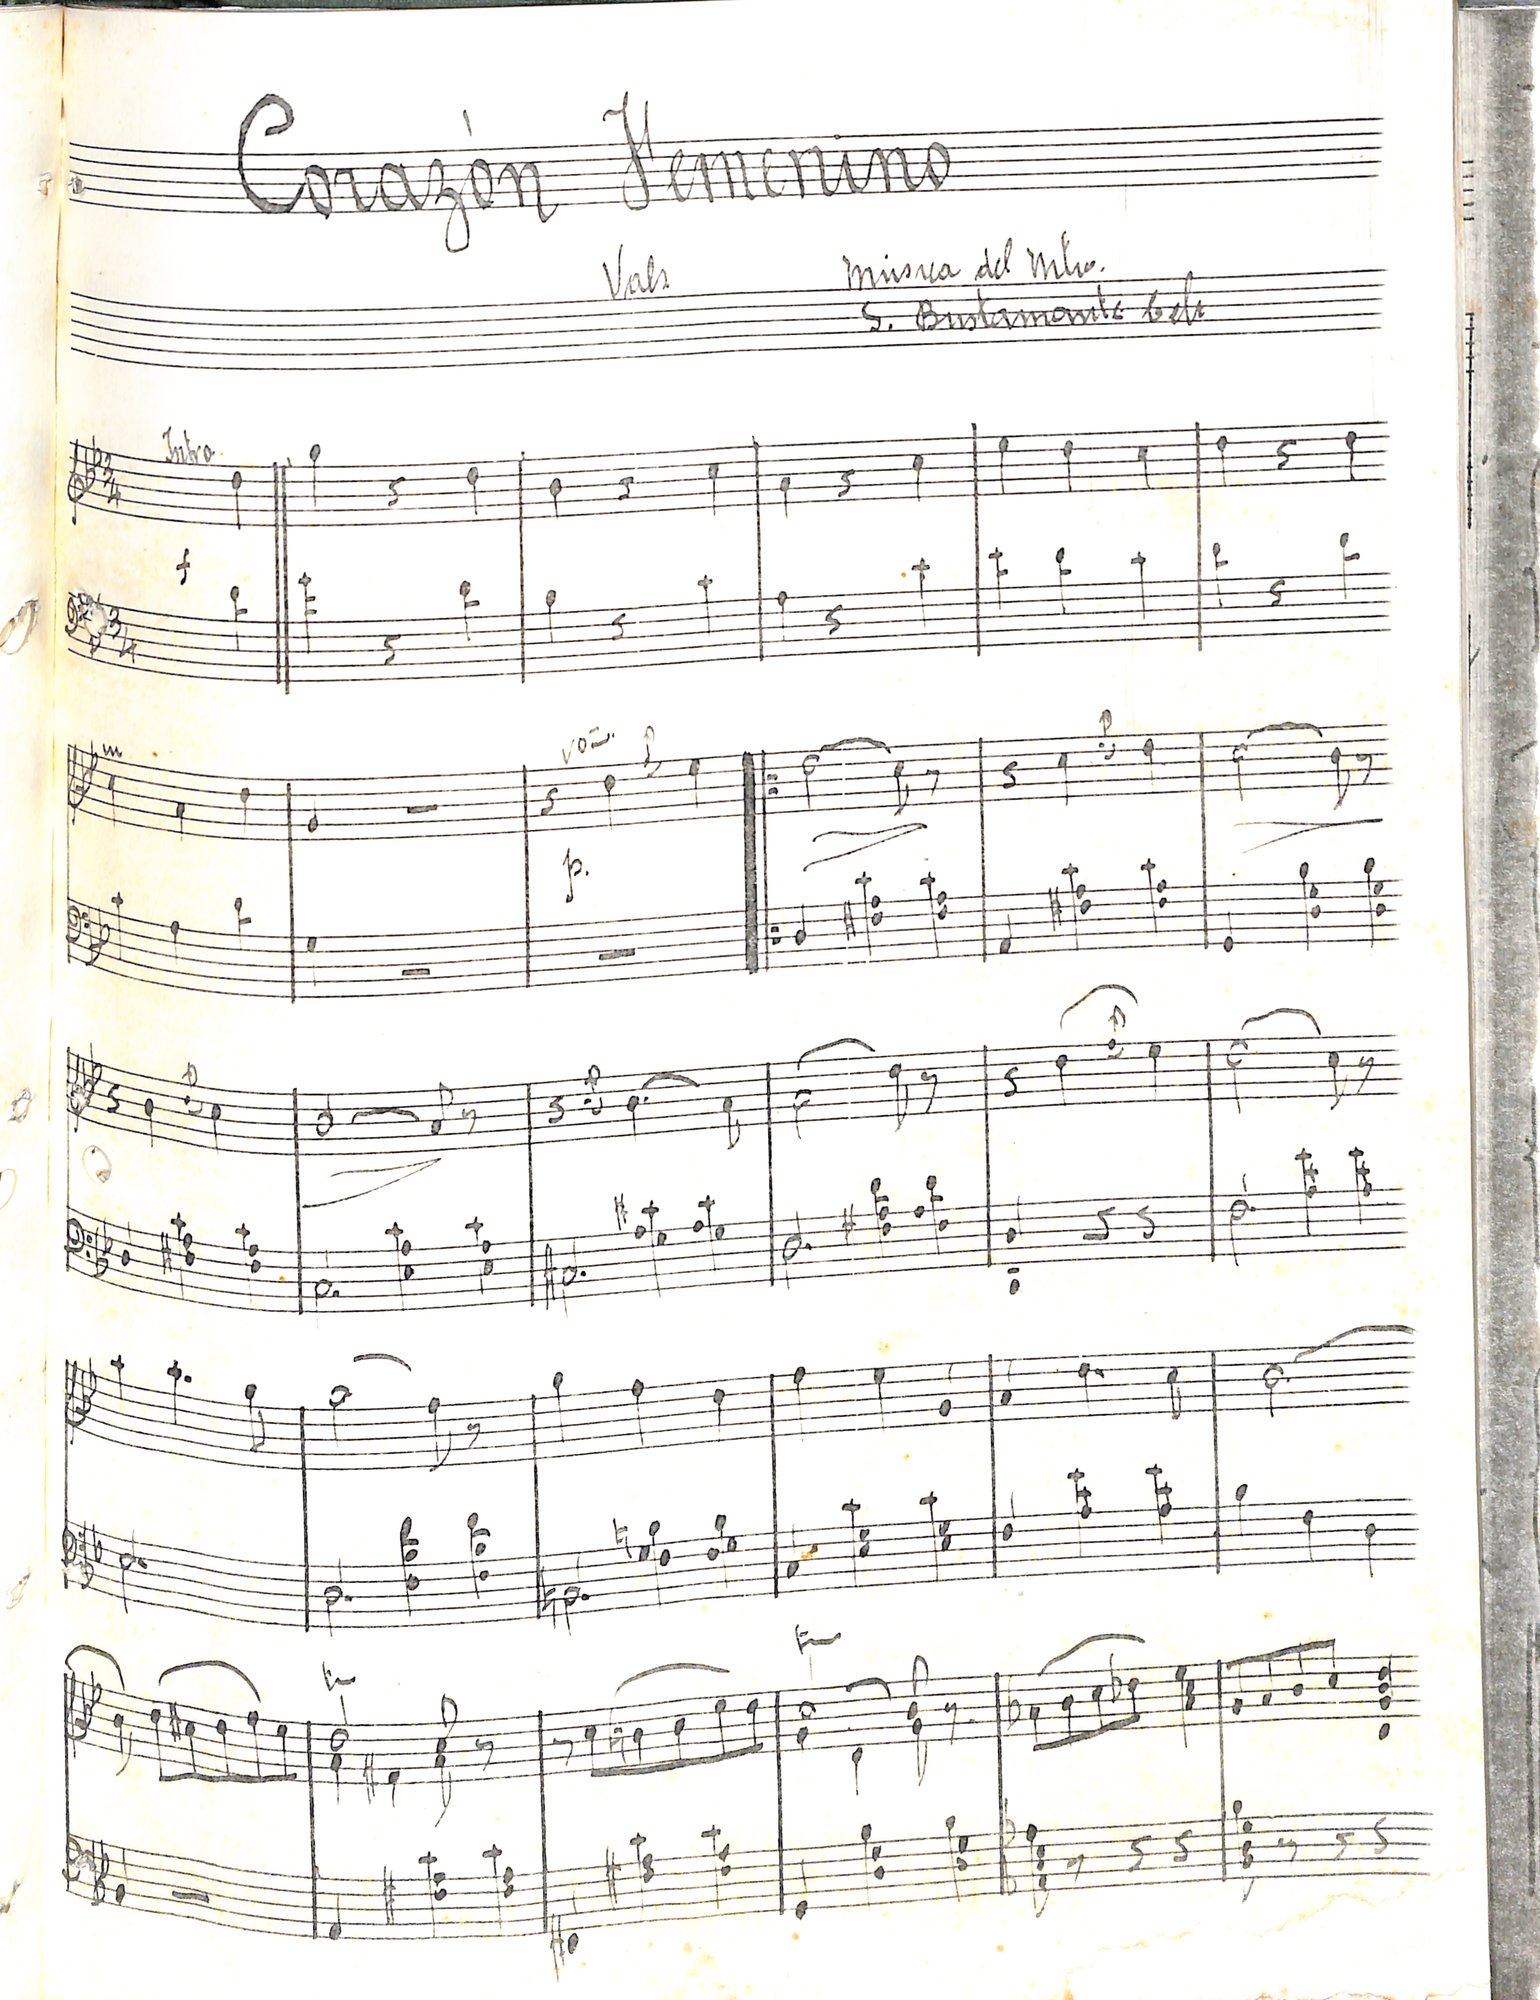 Corazón Femenino
Vals
Música del Mtro.
S. Bustamante Celi
Intro
3 4
f
3 4
voz.
p.